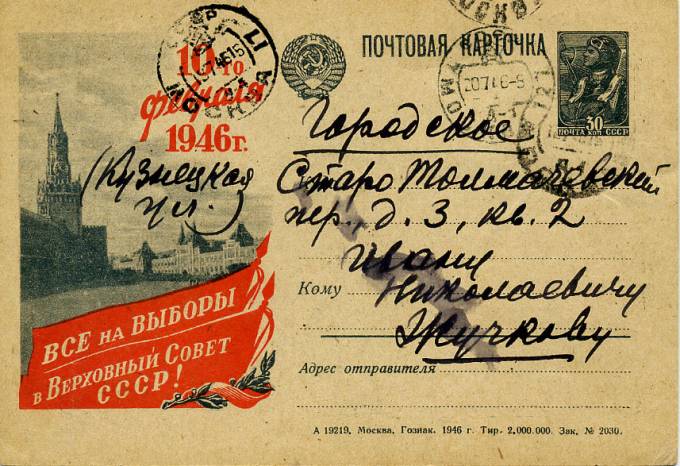 ПОЧТОВАЯ КАРТОЧКА
10го
февраля
1946 г.
30
ПОЧТА КОП СССР
Городское
(Кузнецкая ул.)
Старо Толмачевский
пер., д. 3, кв. 2
Ивану
Кому Николаевичу
Жучкову
ВСЕ НА ВЫБОРЫ
В ВЕРХОВНЫЙ СОВЕТ
СССР!
Адрес отправителя
А 19219. Москва. Гознак. 1946 г. Тир. 2.000.000. Зак. № 2030.